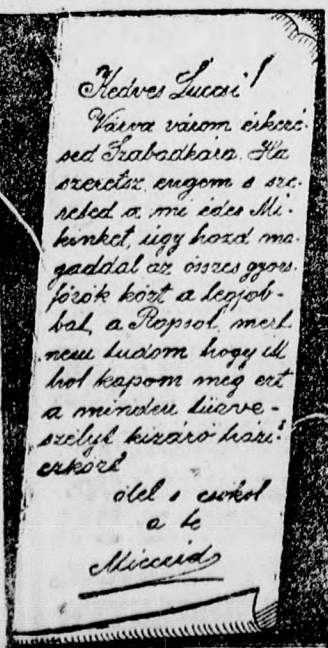 Kedves Luccsi!
Várva várom érkezé-
sed Szabadkára. Ha
szeretsz engem s sze-
reted a mi édes Mi-
kinket, úgy hozd ma-
gaddal az összes gyors-
főzők közt a legjob-
bat, a Rapsol, mert
nem tudom hogy itt
hol kapom meg ezt
a minden tűzve-
szélyt kizáró házi-
eszközt
ölel s csókol
a te